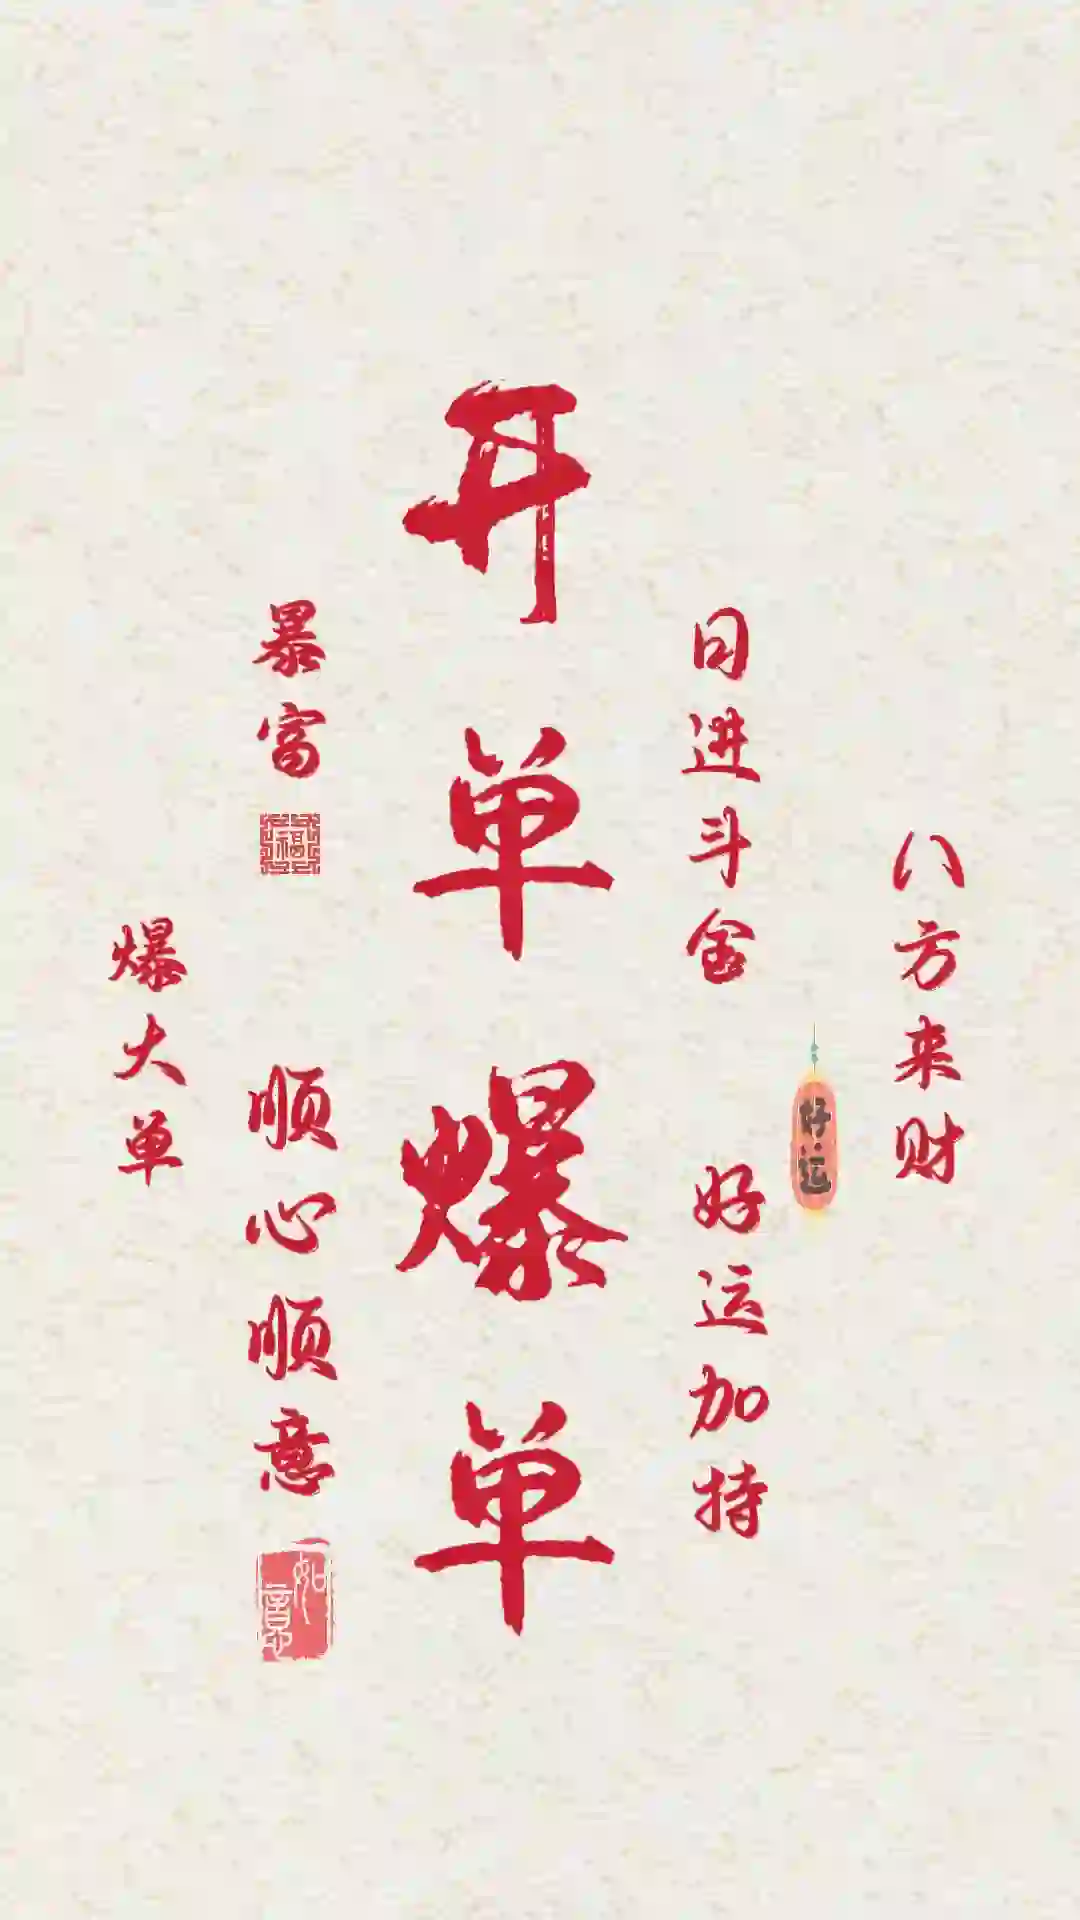 八方来财
好·运
日进斗金
好运加持
开单爆单
暴富
福
顺心顺意
如意
爆大单